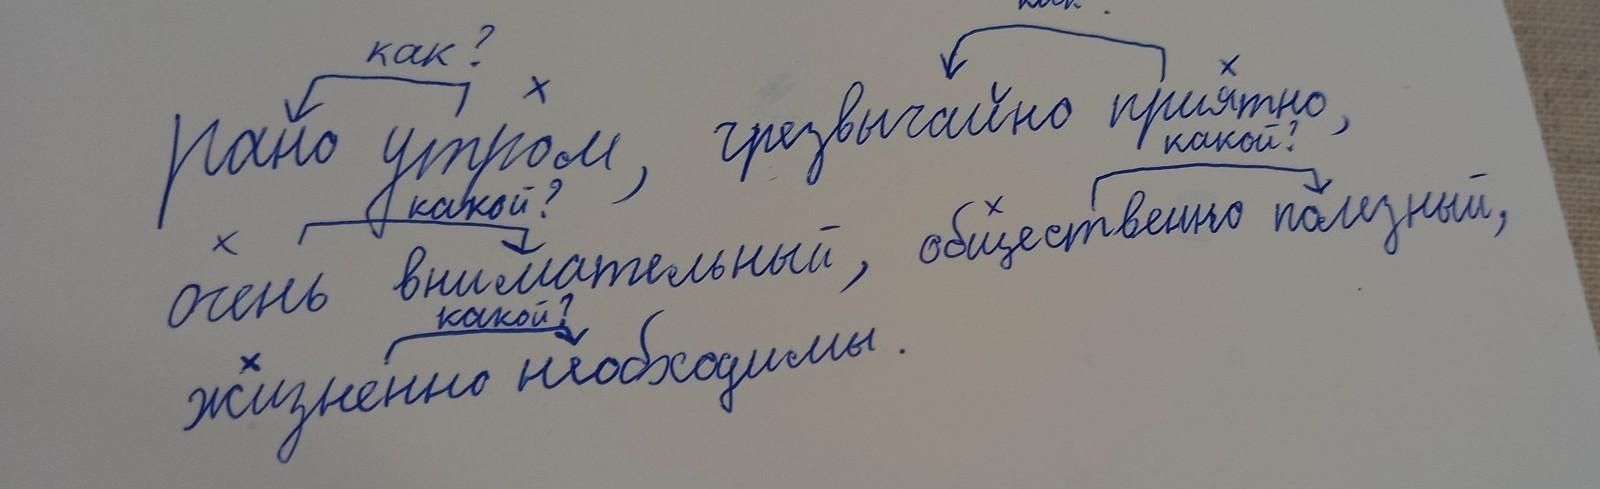 как?
как?
х х
рано утром, чрезвычайно приятно,
какой? какой?
х х
очень внимательный, общественно полезный,
какой?
х
жизненно необходимы.